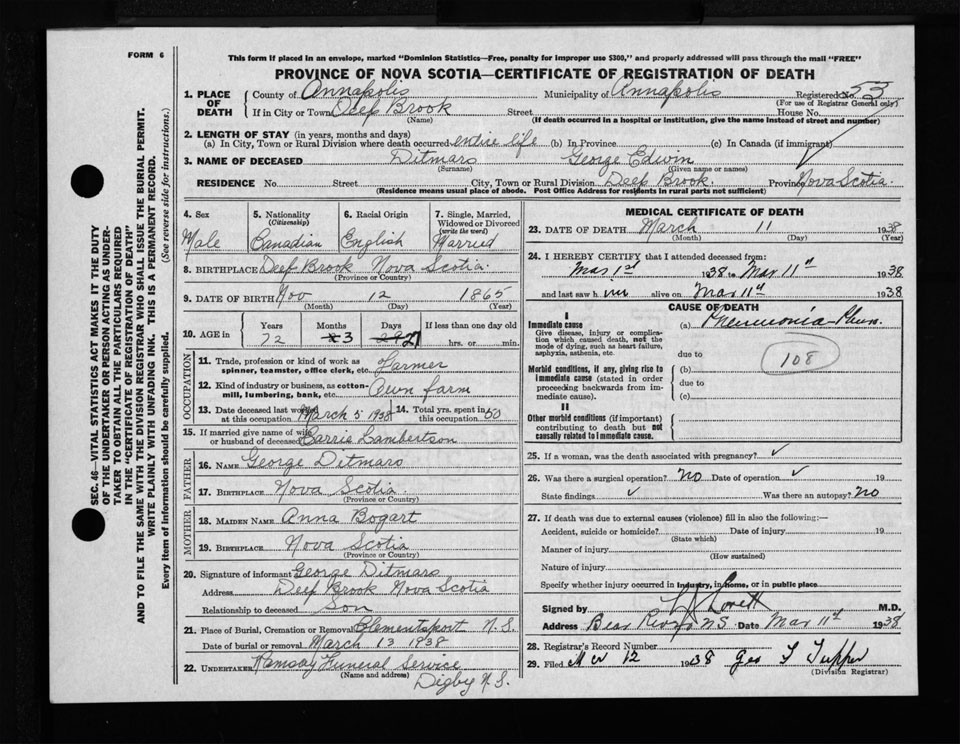 FORM 6
This form if placed in an envelope, marked "Dominion Statistics—Free, penalty for improper use $300," and properly addressed will pass through the mail "FREE"
PROVINCE OF NOVA SCOTIA—CERTIFICATE OF REGISTRATION OF DEATH
SEC. 46—VITAL STATISTICS ACT MAKES IT THE DUTY
OF THE UNDERTAKER OR PERSON ACTING AS UNDER-
TAKER TO OBTAIN ALL THE PARTICULARS REQUIRED
IN THE "CERTIFICATE OF REGISTRATION OF DEATH"
AND TO FILE THE SAME WITH THE DIVISION REGISTRAR WHO SHALL ISSUE THE BURIAL PERMIT.
WRITE PLAINLY WITH UNFADING INK. THIS IS A PERMANENT RECORD.
Every item of information should be carefully supplied. (See reverse side for instructions.)
1. PLACE OF DEATH
County of Annapolis Municipality of Annapolis Registered No. 53
(For use of Registrar General only)
If in City or Town Deep Brook Street House No.
(Name) (If death occurred in a hospital or institution, give the name instead of street and number)
2. LENGTH OF STAY (in years, months and days)
(a) In City, Town or Rural Division where death occurred entire life (b) In Province (c) In Canada (if immigrant)
3. NAME OF DECEASED Ditmars George Edwin
(Surname) (Given name or names)
RESIDENCE No. Street City, Town or Rural Division Deep Brook Province Nova Scotia
(Residence means usual place of abode. Post Office Address for residents in rural parts not sufficient)
4. Sex
Male
5. Nationality
(Citizenship)
Canadian
6. Racial Origin
English
7. Single, Married,
Widowed or Divorced
(write the word)
Married
8. BIRTHPLACE Deep Brook Nova Scotia
(Province or Country)
9. DATE OF BIRTH Nov 12 1865
(Month) (Day) (Year)
10. AGE in
Years Months Days If less than one day old
72 3 27 hrs. or min.
OCCUPATION
11. Trade, profession or kind of work as
spinner, teamster, office clerk, etc. Farmer
12. Kind of industry or business, as cotton-
mill, lumbering, bank, etc. Own farm
13. Date deceased last worked
at this occupation March 5 1938
14. Total yrs. spent in
this occupation 50
15. If married give name of wife
or husband of deceased Carrie Lambertson
FATHER
16. NAME George Ditmars
17. BIRTHPLACE Nova Scotia
MOTHER
18. MAIDEN NAME Anna Bogart
19. BIRTHPLACE Nova Scotia
(Province or Country)
20. Signature of informant George Ditmars
Address Deep Brook Nova Scotia
Relationship to deceased Son
21. Place of Burial, Cremation or Removal Clementsport N.S.
Date of burial or removal March 13 1938
22. UNDERTAKER Ramsay Funeral Service
(Name and address)
Digby N.S.
MEDICAL CERTIFICATE OF DEATH
23. DATE OF DEATH March 11 1938
(Month) (Day) (Year)
24. I HEREBY CERTIFY that I attended deceased from:
Mar 1st 1938 to Mar 11th 1938
and last saw him alive on Mar 11th 1938
CAUSE OF DEATH
I
Immediate cause
Give disease, injury or complica-
tion which caused death, not the
mode of dying, such as heart failure,
asphyxia, asthenia, etc.
(a) Pneumonia
due to
Morbid conditions, if any, giving rise to
immediate cause (stated in order
proceeding backwards from im-
mediate cause).
(b) 108
due to
(c)
II
Other morbid conditions (if important)
contributing to death but not
causally related to I immediate cause.
25. If a woman, was the death associated with pregnancy? ✓
26. Was there a surgical operation? No Date of operation ✓ 19
State findings ✓ Was there an autopsy? No
27. If death was due to external causes (violence) fill in also the following:—
Accident, suicide or homicide? Date of injury 19
(State which)
Manner of injury
(How sustained)
Nature of injury
Specify whether injury occurred in industry, in home, or in public place
Signed by Lovett M.D.
Address Bear River NS Date Mar 11th 1938
28. Registrar's Record Number
29. Filed Mar 12 1938 Geo Tupper
(Division Registrar)